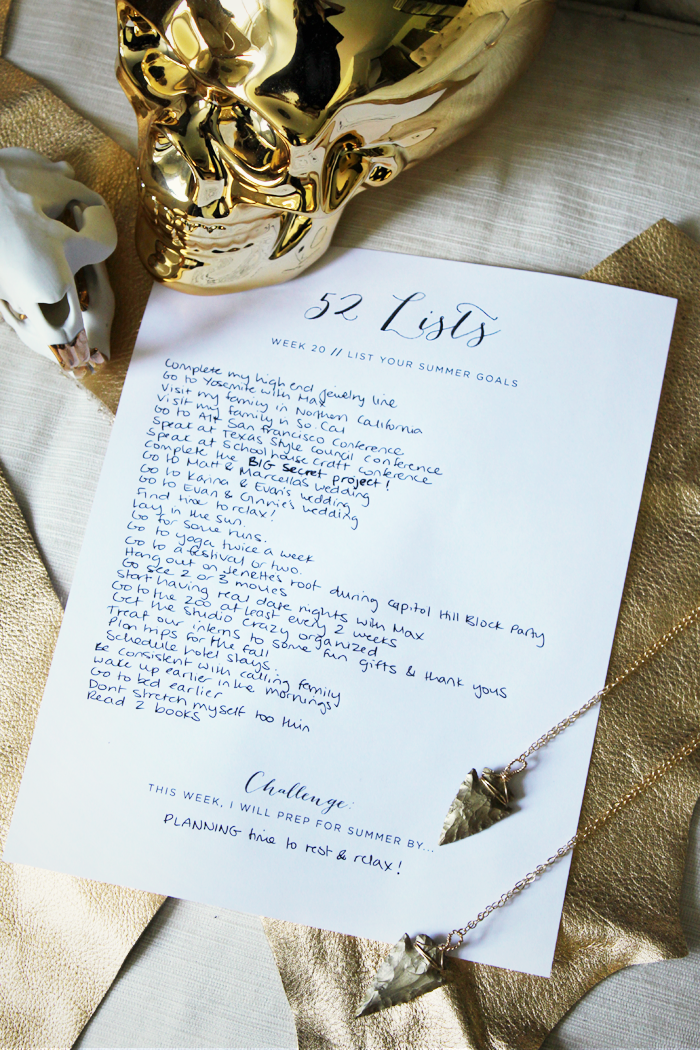 52 Lists
WEEK 20 // LIST YOUR SUMMER GOALS
Complete my high end jewelry line
Go to Yosemite with Max
Visit my family in Northern California
Visit my family in So. Cal
Go to Alt San Francisco Conference
Speak at Texas Style Council Conference
Speak at School house Craft Conference
Complete the BIG Secret project!
Go to Matt & Marcella's wedding
Go to Karina & Evan's wedding
Go to Evan & Ginnie's wedding
Find time to relax!
Lay in the sun.
Go for some runs.
Go to yoga twice a week
Go to a festival or two.
Hang out on Jenette's roof during Capitol Hill Block Party
Go see 2 or 3 movies
Start having real date nights with Max
Go to the zoo at least every 2 weeks
Get the studio crazy organized
Treat our interns to some fun gifts & thank yous
Plan trips for the fall
Schedule hotel stays.
Be consistent with calling family
Wake up earlier in the mornings!
Go to bed earlier
Dont stretch myself too thin
Read 2 books
Challenge:
THIS WEEK, I WILL PREP FOR SUMMER BY...
PLANNING time to rest & relax!